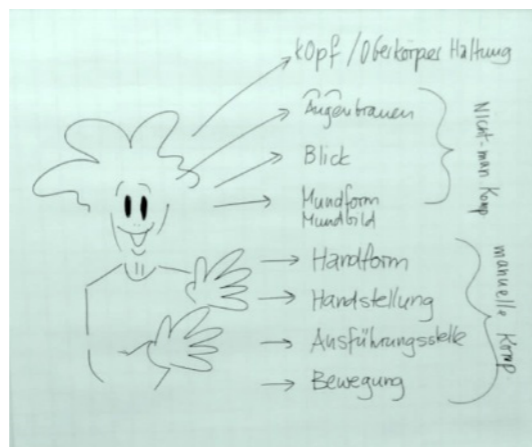 Kopf / Oberkörper Haltung
Augenbrauen
Blick
Mundform
Mundbild
Nicht-man Komp
Handform
Handstellung
Ausführungsstelle
Bewegung
manuelle Komp.